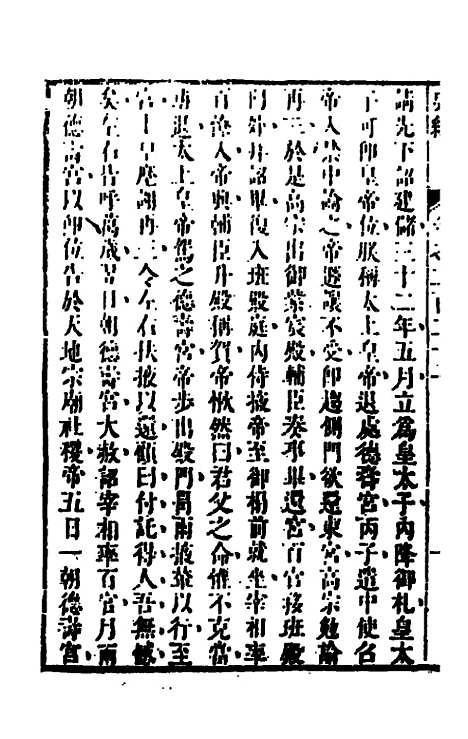 請先下詔建儲三十二年五月立爲皇太子內降御札皇太
子可卽皇帝位朕稱太上皇帝退處德壽宮丙子遣中使召
帝入禁中諭之帝遜讓不受卽趨側門欲還東宮高宗勉諭
再三於是高宗出御紫宸殿輔臣奏事畢還宮百官移班殿
門外拜詔畢復入班殿庭內侍掖帝至御榻前就坐宰相率
百僚入帝興輔臣升殿稱賀帝愀然曰君父之命惟不克當
班退太上皇帝駕之德壽宮帝步出殿門冒雨掖輦以行至
宮上 麾謝再三令左右扶掖以還顧曰付託得人吾無憾
矣左右皆呼萬歲翌日朝德壽宮大赦詔宰相率百官月兩
朝德壽宮以卽位告於天地宗廟社稷帝五日一朝德壽宮